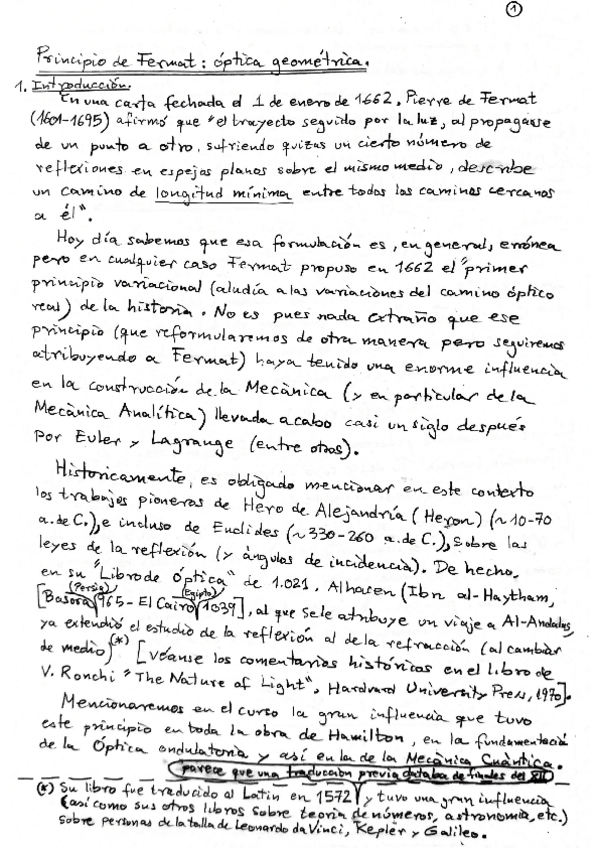 1
Principio de Fermat: óptica geométrica.
1. Introducción.
En una carta fechada el 1 de enero de 1662, Pierre de Fermat
(1601-1695) afirmó que "el trayecto seguido por la luz, al propagarse
de un punto a otro, sufriendo quizas un cierto número de
reflexiones en espejos planos sobre el mismo medio, describe
un camino de longitud mínima entre todos los caminos cercanos
a él".
Hoy día sabemos que esa formulación es, en general, errónea
pero en cualquier caso Fermat propuso en 1662 el "primer
principio variacional (aludía a las variaciones del camino óptico
real) de la historia. No es pues nada extraño que ese
principio (que reformularemos de otra manera pero seguiremos
atribuyendo a Fermat) haya tenido una enorme influencia
en la construcción de la Mecànica (y en particular de la
Mecànica Analítica) llevada a cabo casi un siglo después
por Euler y Lagrange (entre otros).
Historicamente, es obligado mencionar en este contexto
los trabajos pioneros de Hero de Alejandría (Heron) (~10-70
a. de C.), e incluso de Euclides (~330-260 a. de C.), sobre las
leyes de la reflexión (y ángulos de incidencia). De hecho,
en su "Libro de óptica" de 1.021, Alhacen (Ibn al-Haytham,
[Basora (Persia) 965 - El Cairo (Egipto) 1039], al que se le atribuye un viaje a Al-Andalus,
ya extendió el estudio de la reflexión al de la refracción (al cambiar
de medio)(*) [véanse los comentarios históricos en el libro de
V. Ronchi "The Nature of Light", Hardvard University Press, 1970].
Mencionaremos en el curso la gran influencia que tuvo
este principio en toda la obra de Hamilton, en la fundamentació
de la Óptica ondulatoria y así en la de la Mecànica Cuántica.
parece que una traducción previa databa de finales del XII
(*) Su libro fue traducido al Latin en 1572 y tuvo una gran influencia
(así como sus otros libros sobre teoria de números, astronomia, etc.)
sobre personas de la talla de Leonardo da Vinci, Kepler y Galileo.